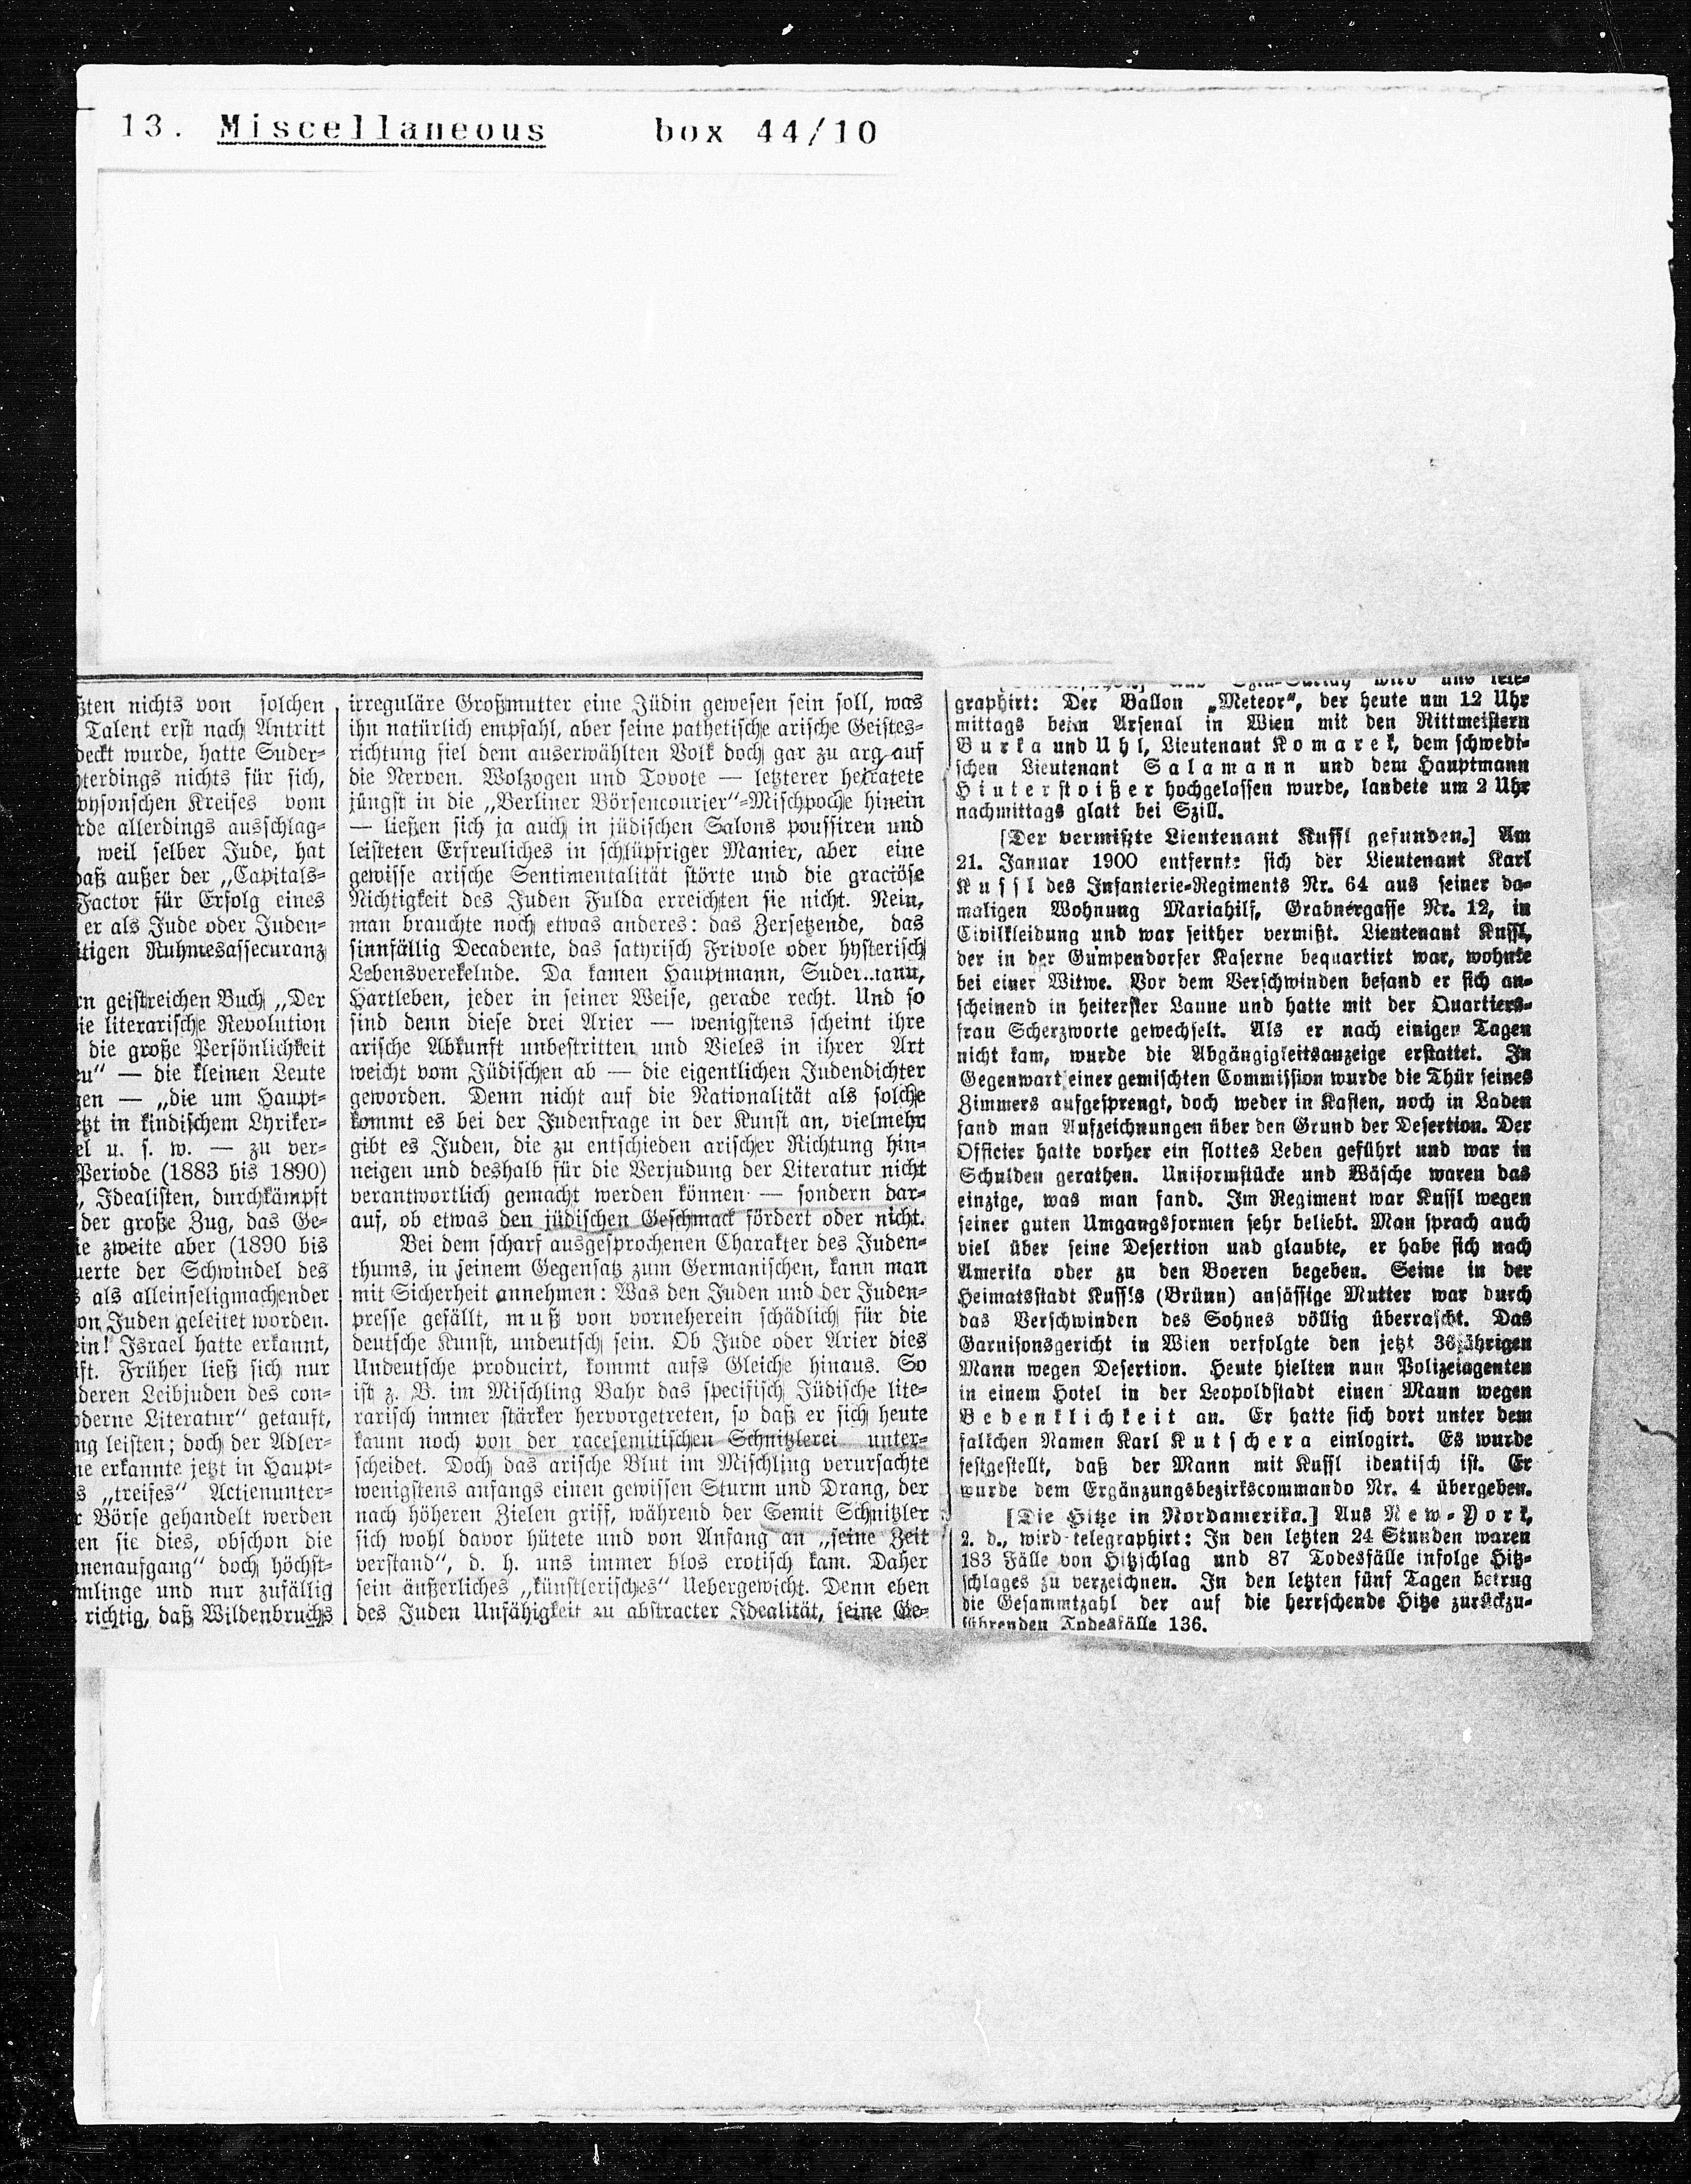 13. Miscellaneous box 44/10
ßten nichts von solchen
Talent erst nach Antritt
deckt wurde, hatte Suder-
terdings nichts für sich,
vysonschen Kreises vom
rde allerdings ausschlag-
, weil selber Jude, hat
daß außer der „Capitals-
Factor für Erfolg eines
er als Jude oder Juden-
itigen Ruhmesassecuranz
rn geistreichen Buch „Der
ie literarische Revolution
die große Persönlichkeit
en“ — die kleinen Leute
gen — „die um Haupt-
etzt in kindischem Lyriker-
el u. s. w. — zu ver-
Periode (1883 bis 1890)
, Idealisten, durchkämpft
der große Zug, das Ge-
ie zweite aber (1890 bis
uerte der Schwindel des
s als alleinseligmachender
on Juden geleitet worden.
ein! Israel hatte erkannt,
ift. Früher ließ sich nur
deren Leibjuden des con-
oderne Literatur“ getauft,
ng leisten; doch der Adler-
ne erkannte jetzt in Haupt-
s „treifes“ Actienunter-
r Börse gehandelt werden
en sie dies, obschon die
nenaufgang“ doch höchst-
mlinge und nur zufällig
richtig, daß Wildenbruchs
irreguläre Großmutter eine Jüdin gewesen sein soll, was
ihn natürlich empfahl, aber seine pathetische arische Geistes-
richtung fiel dem auserwählten Volk doch gar zu arg auf
die Nerven. Wolzogen und Tovote — letzterer heiratete
jüngst in die „Berliner Börsencourier“-Mischpoche hinein
— ließen sich ja auch in jüdischen Salons poussiren und
leisteten Erfreuliches in schlüpfriger Manier, aber eine
gewisse arische Sentimentalität störte und die graciöse
Nichtigkeit des Juden Fulda erreichten sie nicht. Nein,
man brauchte noch etwas anderes: das Zersetzende, das
sinnfällig Decadente, das satyrisch Frivole oder hysterisch
Lebensverekelnde. Da kamen Hauptmann, Suder..tann,
Hartleben, jeder in seiner Weise, gerade recht. Und so
sind denn diese drei Arier — wenigstens scheint ihre
arische Abkunft unbestritten und Vieles in ihrer Art
weicht vom Jüdischen ab — die eigentlichen Judendichter
geworden. Denn nicht auf die Nationalität als solche
kommt es bei der Judenfrage in der Kunst an, vielmehr
gibt es Juden, die zu entschieden arischer Richtung hin-
neigen und deshalb für die Verjudung der Literatur nicht
verantwortlich gemacht werden können — sondern dar-
auf, ob etwas den jüdischen Geschmack fördert oder nicht.
Bei dem scharf ausgesprochenen Charakter des Juden-
thums, in seinem Gegensatz zum Germanischen, kann man
mit Sicherheit annehmen: Was den Juden und der Juden-
presse gefällt, muß von vorneherein schädlich für die
deutsche Kunst, undeutsch sein. Ob Jude oder Arier dies
Undeutsche producirt, kommt aufs Gleiche hinaus. So
ist z. B. im Mischling Bahr das specifisch Jüdische lite-
rarisch immer stärker hervorgetreten, so daß er sich heute
kaum noch von der racesemitischen Schnitzlerei unter-
scheidet. Doch das arische Blut im Mischling verursachte
wenigstens anfangs einen gewissen Sturm und Drang, der
nach höheren Zielen griff, während der Semit Schnitzler
sich wohl davor hütete und von Anfang an „seine Zeit
verstand“, d. h. uns immer blos erotisch kam. Daher
sein äußerliches „künstlerisches“ Uebergewicht. Denn eben
des Juden Unfähigkeit zu abstracter Idealität, seine Ge-
wird uns tele-
graphirt: Der Ballon „Meteor“, der heute um 12 Uhr
mittags beim Arsenal in Wien mit den Rittmeistern
Burka und Uhl, Lieutenant Komarek, dem schwedi-
schen Lieutenant Salamann und dem Hauptmann
Hinterstoißer hochgelassen wurde, landete um 2 Uhr
nachmittags glatt bei Szill.
[Der vermißte Lieutenant Kussl gefunden.] Am
21. Januar 1900 entfernte sich der Lieutenant Karl
Kussl des Infanterie-Regiments Nr. 64 aus seiner da-
maligen Wohnung Mariahilf, Grabnergasse Nr. 12, in
Civilkleidung und war seither vermißt. Lieutenant Kussl,
der in der Gumpendorfer Kaserne bequartirt war, wohnte
bei einer Witwe. Vor dem Verschwinden befand er sich an-
scheinend in heiterster Laune und hatte mit der Quartiers-
frau Scherzworte gewechselt. Als er nach einigen Tagen
nicht kam, wurde die Abgängigkeitsanzeige erstattet. In
Gegenwart einer gemischten Commission wurde die Thür seines
Zimmers aufgesprengt, doch weder in Kasten, noch in Laden
fand man Aufzeichnungen über den Grund der Desertion. Der
Officier hatte vorher ein flottes Leben geführt und war in
Schulden gerathen. Uniformstücke und Wäsche waren das
einzige, was man fand. Im Regiment war Kussl wegen
seiner guten Umgangsformen sehr beliebt. Man sprach auch
viel über seine Desertion und glaubte, er habe sich nach
Amerika oder zu den Boeren begeben. Seine in der
Heimatsstadt Kussls (Brünn) ansässige Mutter war durch
das Verschwinden des Sohnes völlig überrascht. Das
Garnisonsgericht in Wien verfolgte den jetzt 36jährigen
Mann wegen Desertion. Heute hielten nun Polizeiagenten
in einem Hotel in der Leopoldstadt einen Mann wegen
Bedenklichkeit an. Er hatte sich dort unter dem
falschen Namen Karl Kutschera einlogirt. Es wurde
festgestellt, daß der Mann mit Kussl identisch ist. Er
wurde dem Ergänzungsbezirkscommando Nr. 4 übergeben.
[Die Hitze in Nordamerika.] Aus New-York,
2. d., wird telegraphirt: In den letzten 24 Stunden waren
183 Fälle von Hitzschlag und 87 Todesfälle infolge Hitz-
schlages zu verzeichnen. In den letzten fünf Tagen betrug
die Gesammtzahl der auf die herrschende Hitze zurückzu-
führenden Todesfälle 136.